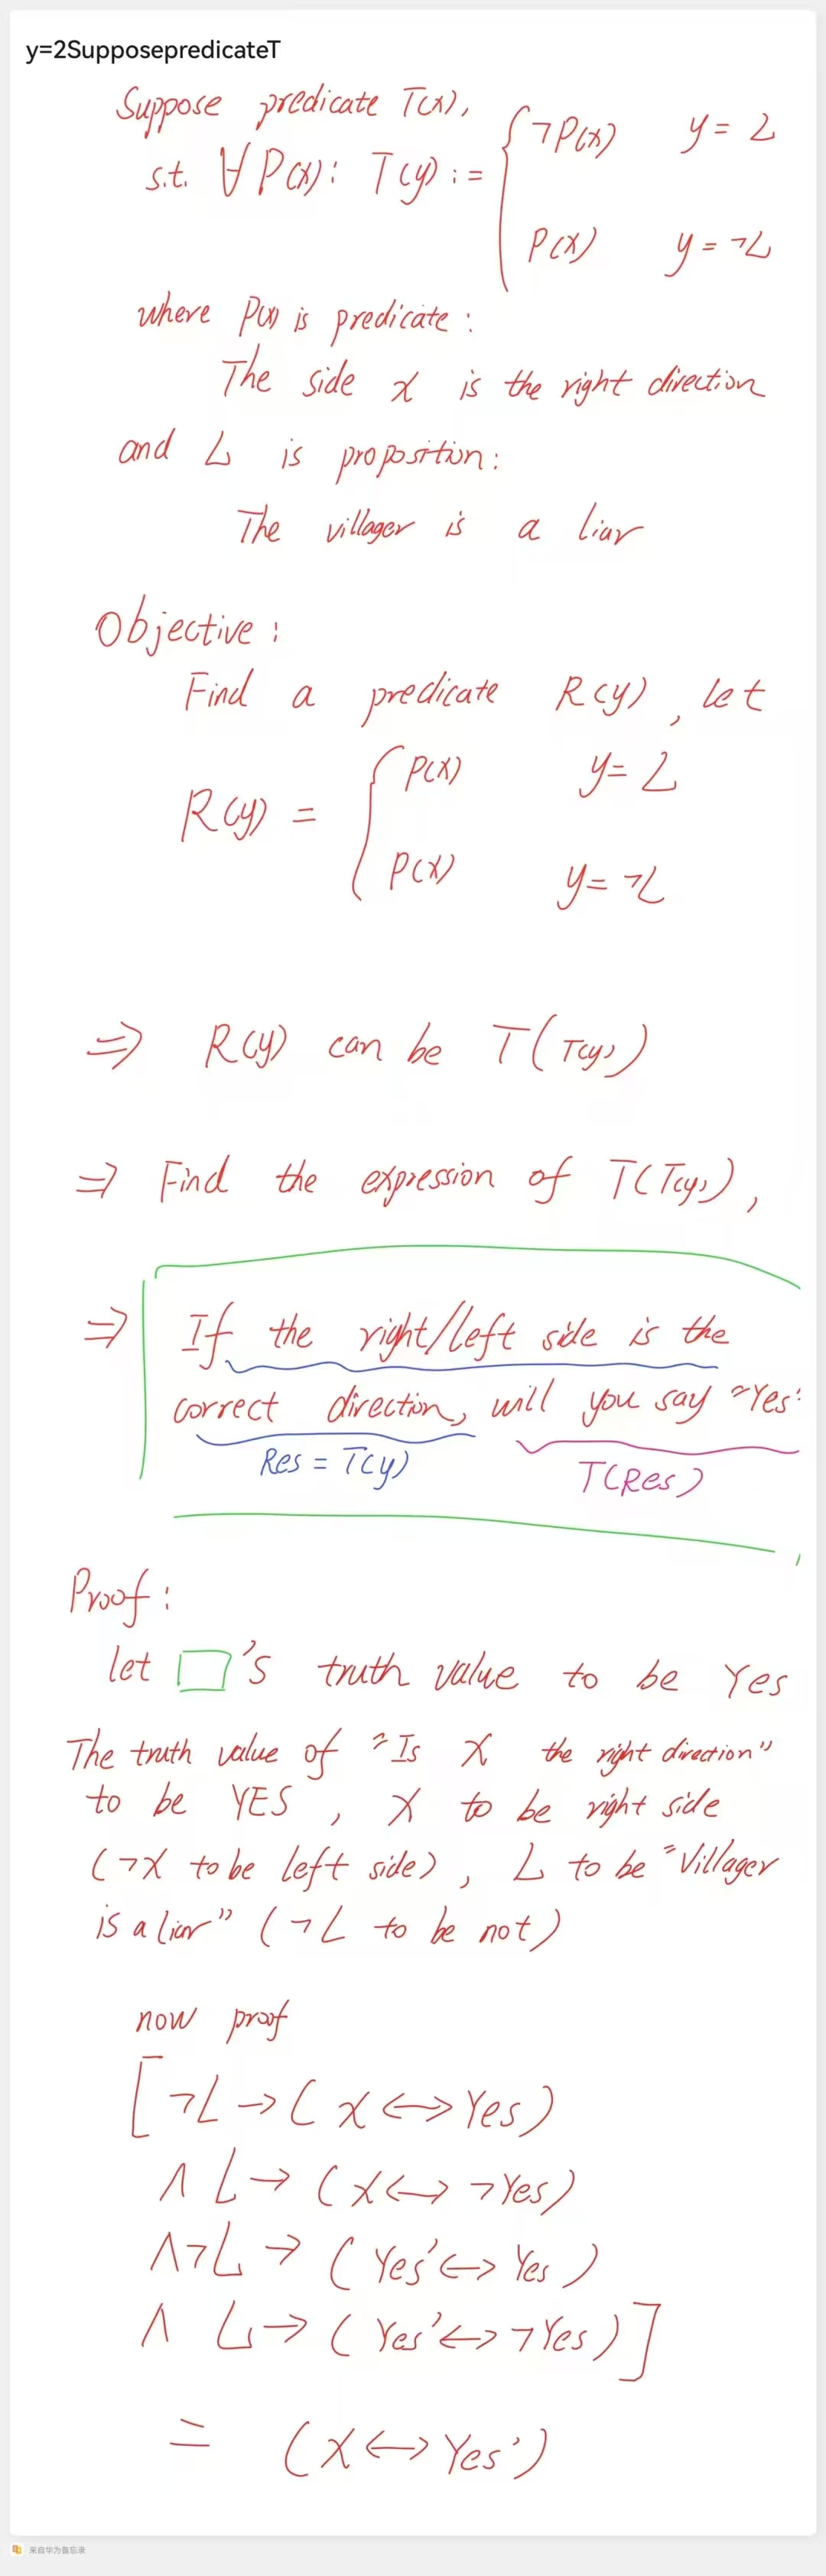 y=2SupposepredicateT
Suppose predicate T(x),
s.t. ∀P(x): T(y):= { ¬P(x) y = L
P(x) y = ¬L
where P(x) is predicate:
The side x is the right direction
and L is proposition:
The villager is a liar
Objective:
Find a predicate R(y), let
R(y) = { P(x) y = L
P(x) y = ¬L
⇒ R(y) can be T(T(y))
⇒ Find the expression of T(T(y)),
⇒ If the right/left side is the
correct direction, will you say "Yes"
Res = T(y)
T(Res)
Proof:
let □'s truth value to be Yes
The truth value of "Is X the right direction"
to be YES, X to be right side
(¬X to be left side), L to be "Villager
is a liar" (¬L to be not)
now proof
[¬L → (X ↔ Yes)
∧ L → (X ↔ ¬Yes)
∧ ¬L → (Yes' ↔ Yes)
∧ L → (Yes' ↔ ¬Yes)]
= (X ↔ Yes')
来自华为备忘录